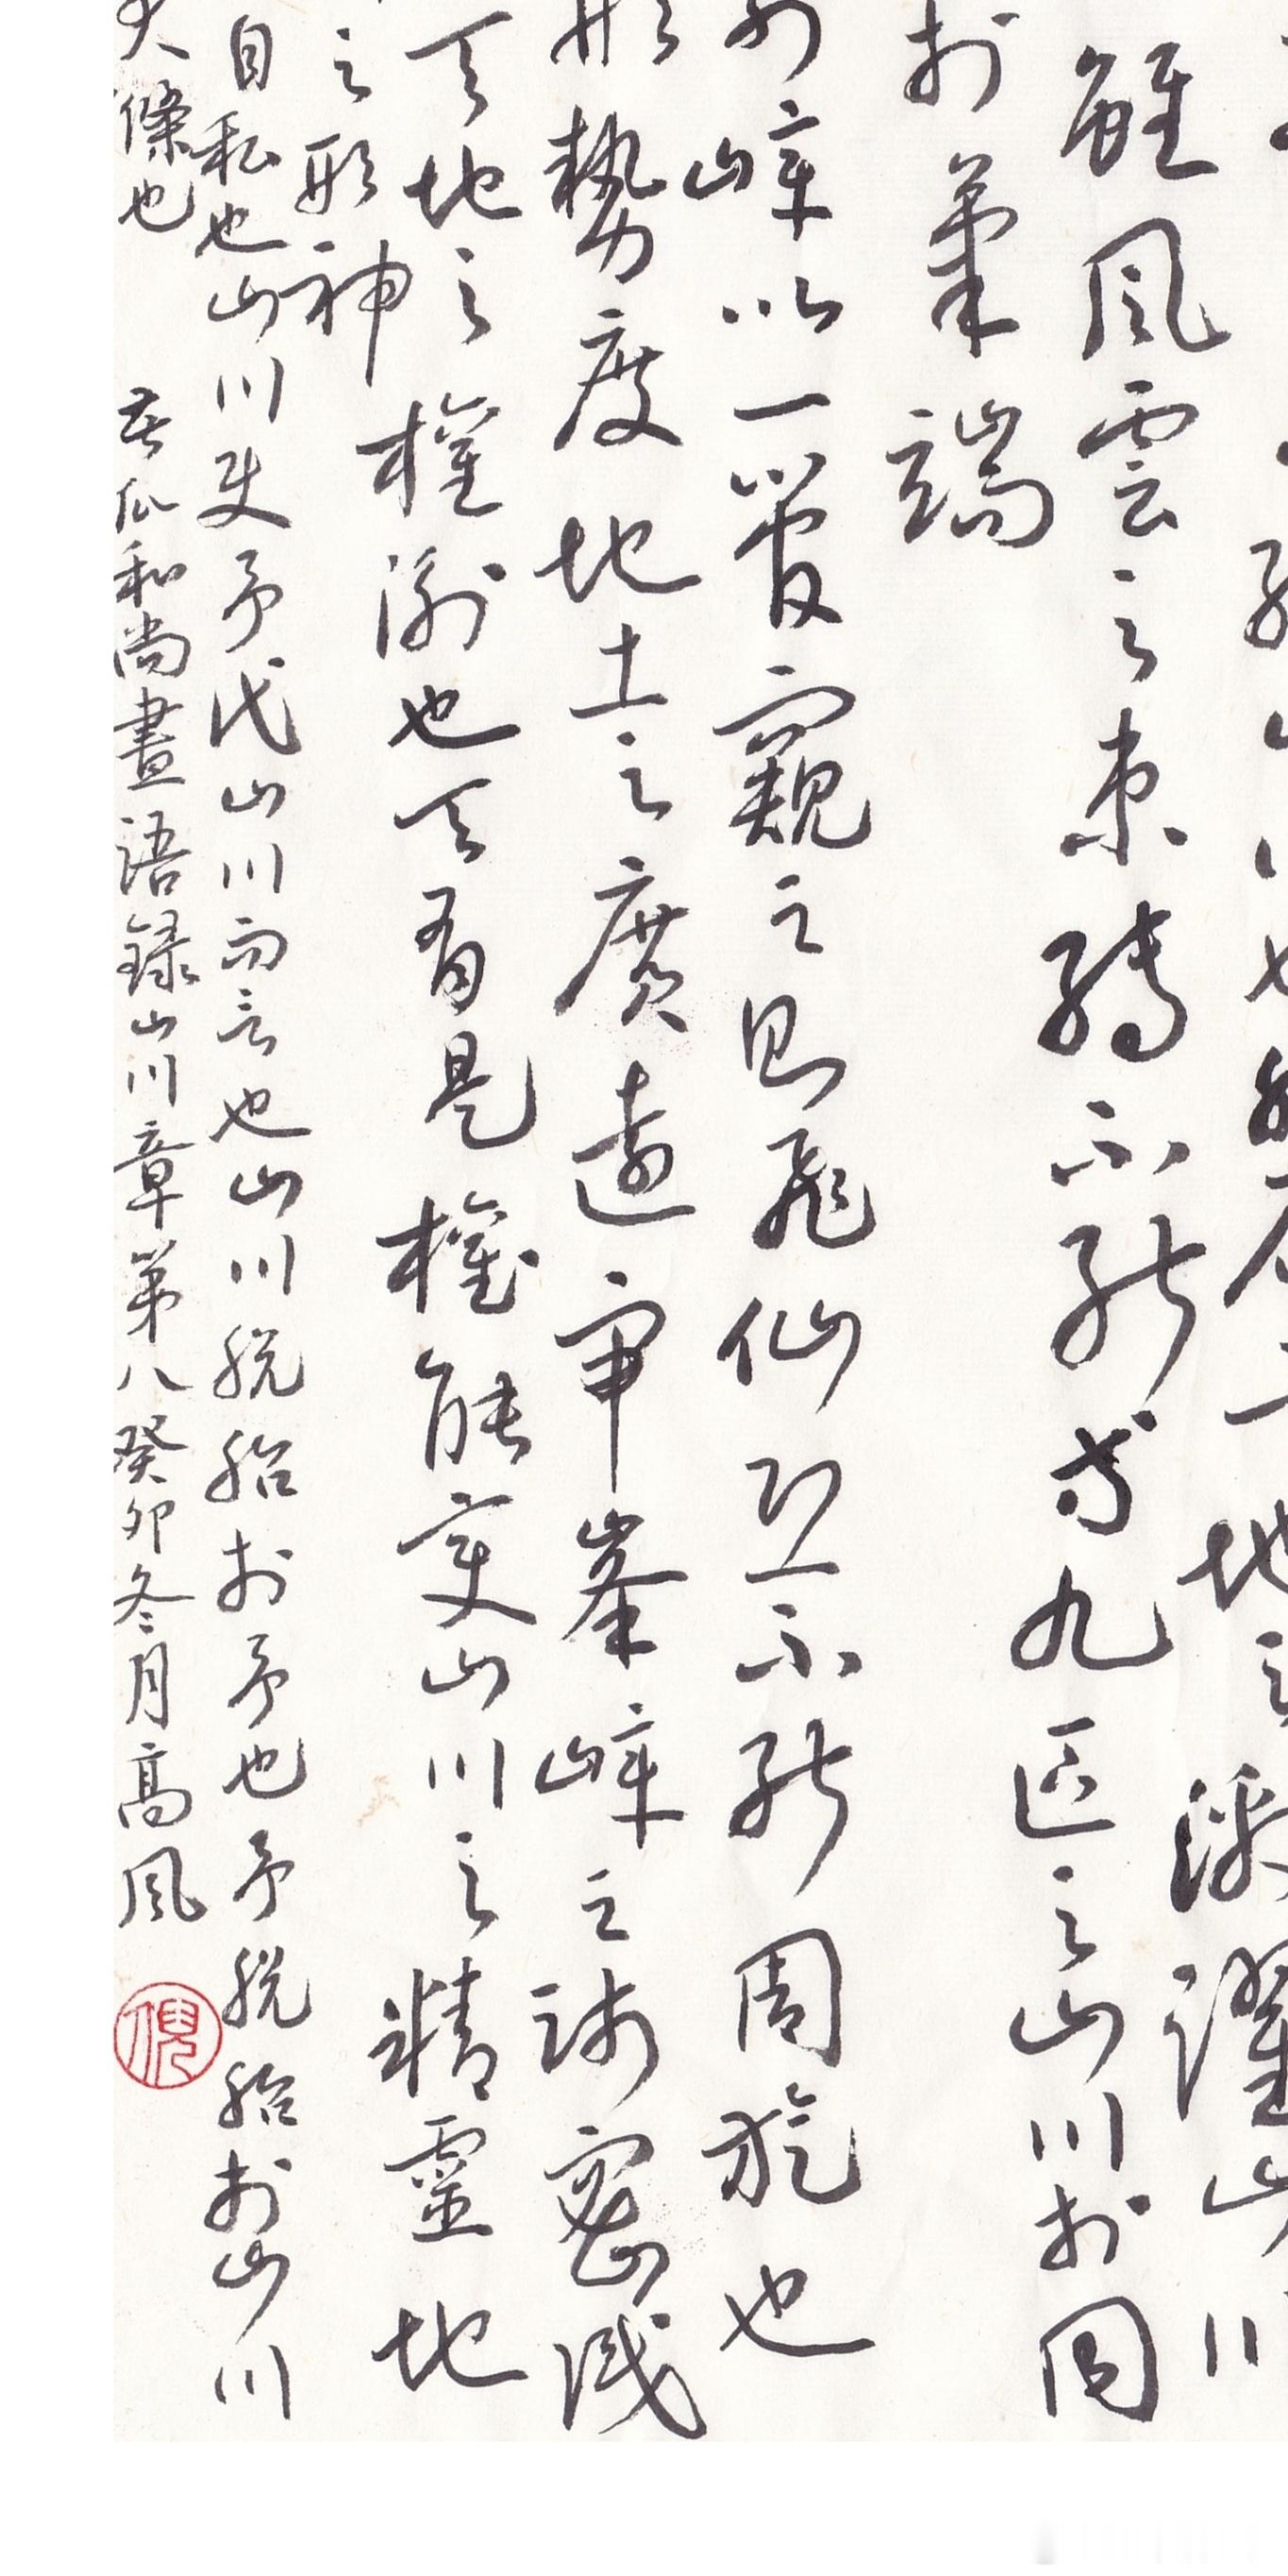 地之激躍山川
雖風雲之束縛不能等九區之山川於同
於筆端
列嶂以一管窺之即飛仙恐不能周旋也
形勢度地土之廣遠審峯嶂之疏密識
天地之權衡也天有是權能變山川之精靈地
之形神
自私也山川使予代山川而言也山川脫胎於予也予脫胎於山川
大滌也 苦瓜和尚畫語錄山川章第八癸卯冬月高風
倪